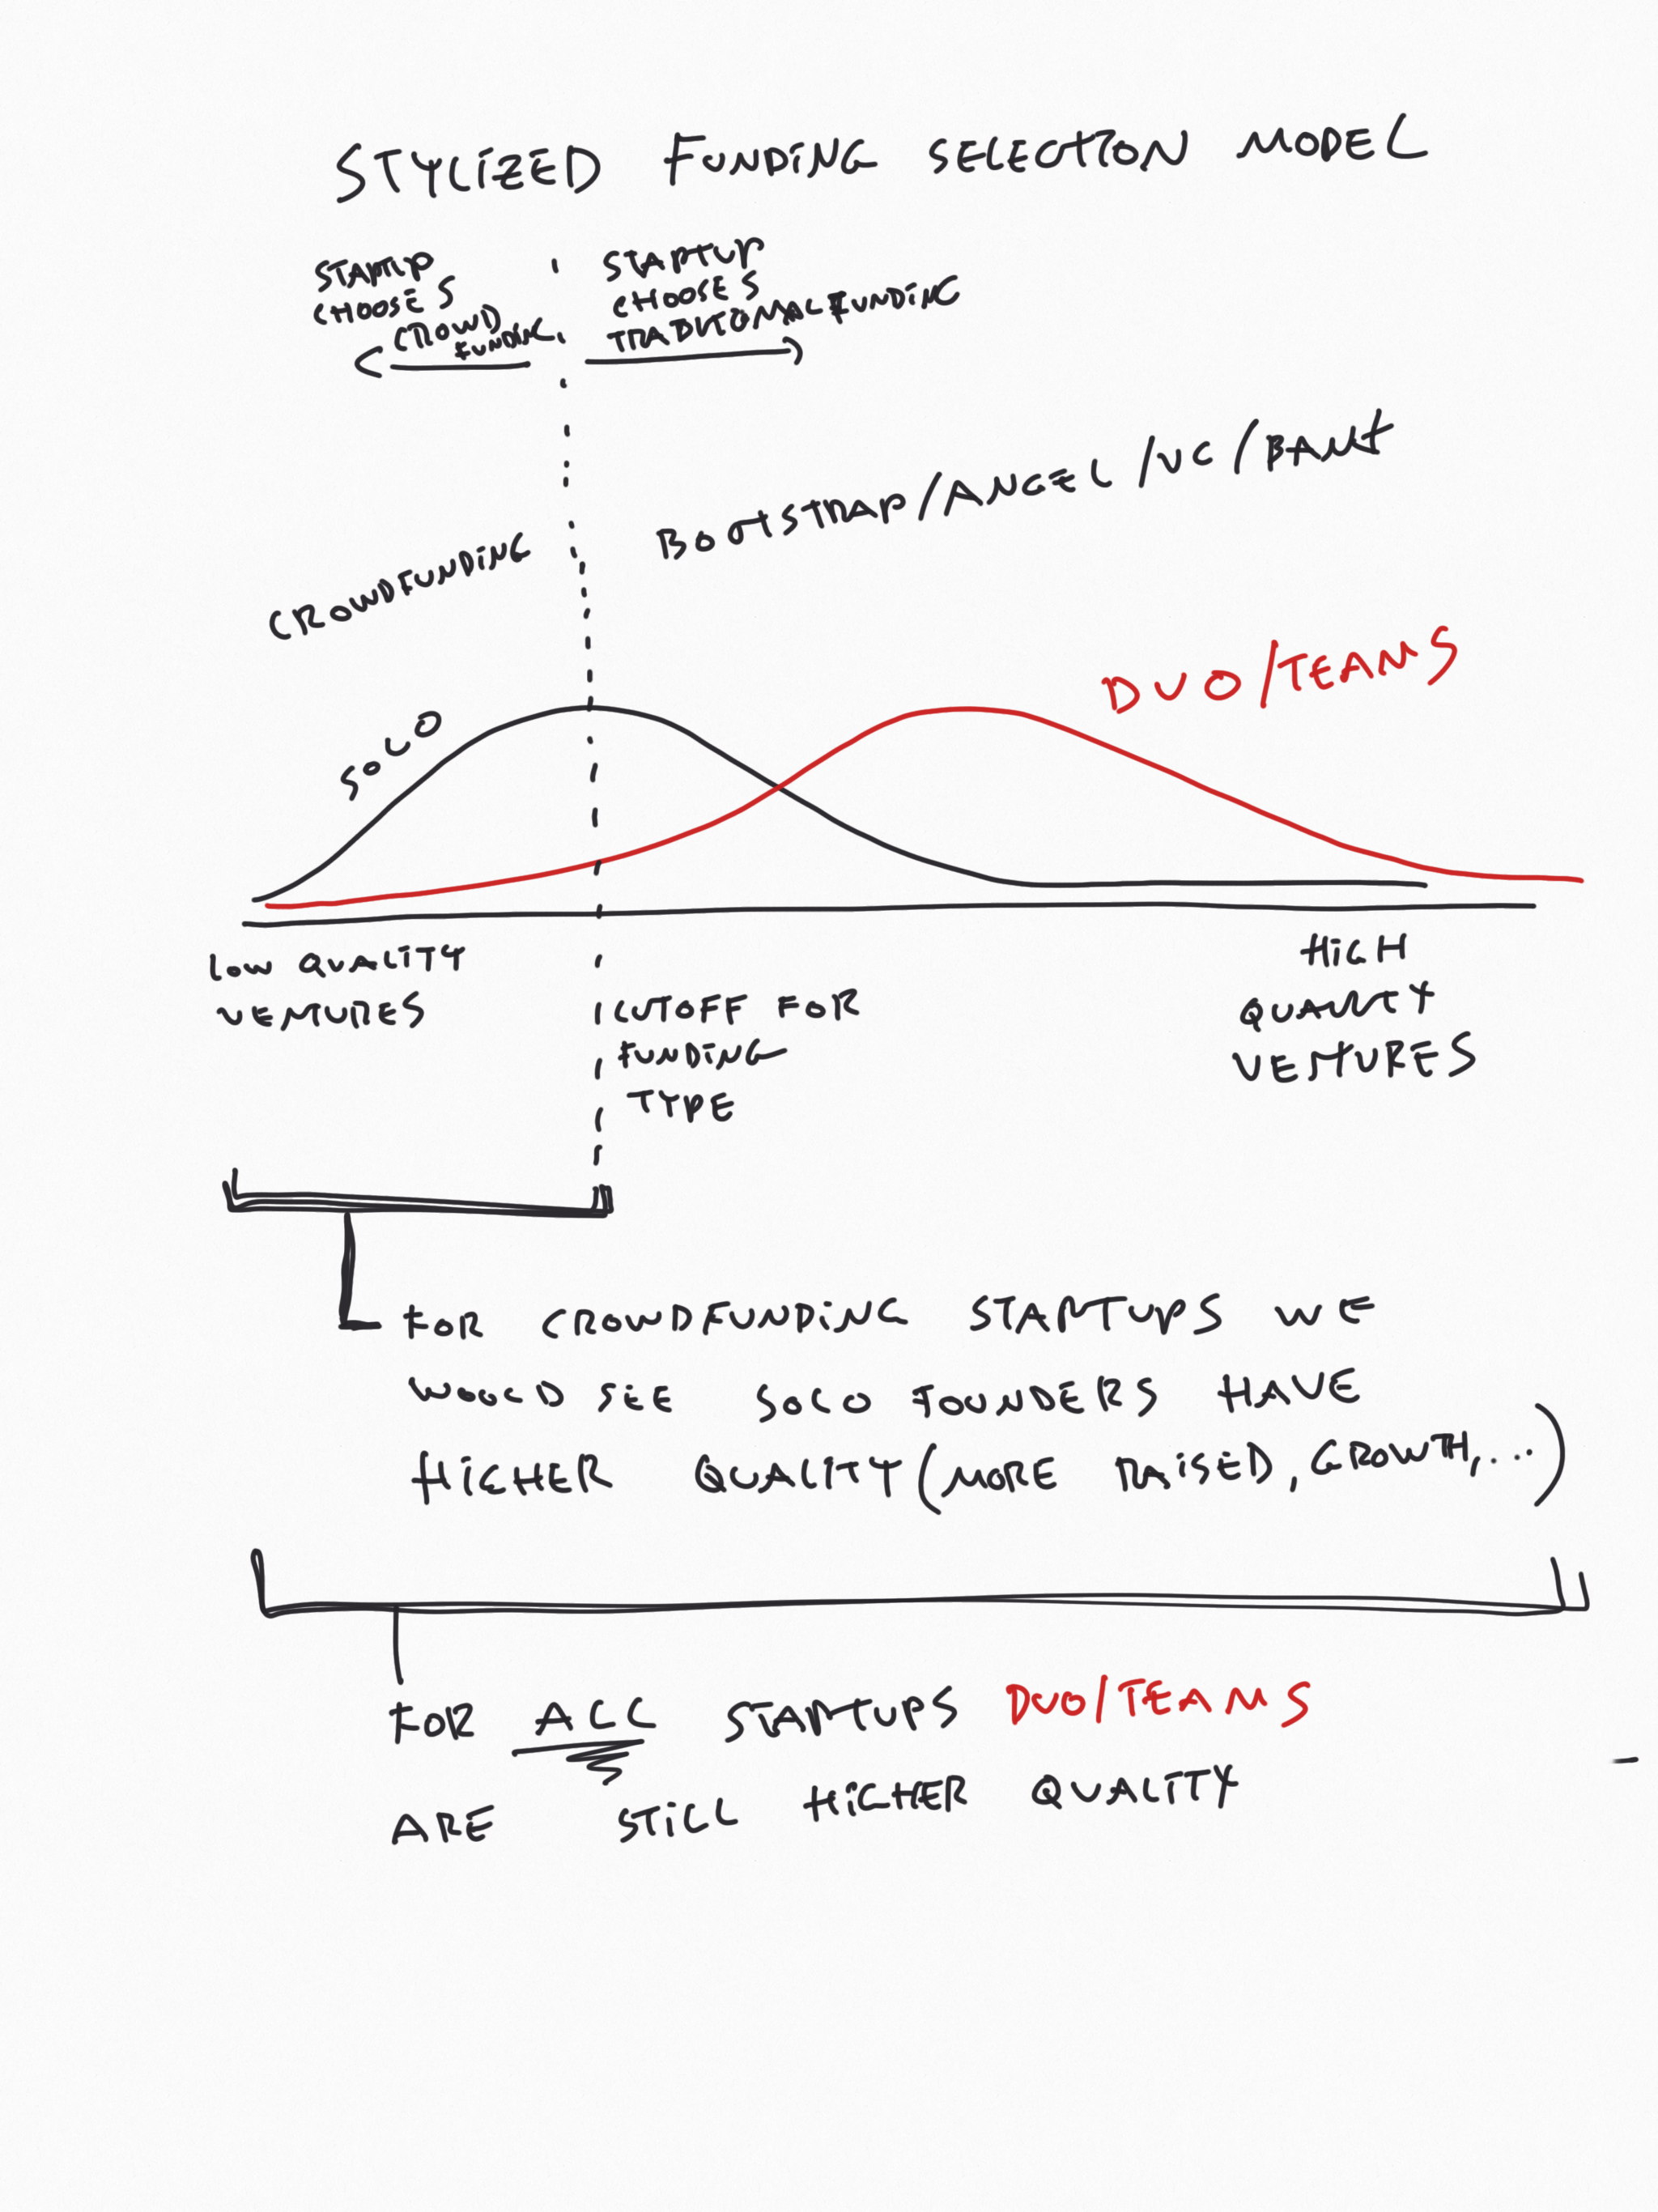 STYLIZED FUNDING SELECTION MODEL
STARTUP
CHOOSES
CROWD
FUNDING
STARTUP
CHOOSES
TRADITIONAL FUNDING
CROWDFUNDING
BOOTSTRAP/ANGEL/VC/BANK
SOLO
DUO/TEAMS
LOW QUALITY
VENTURES
CUTOFF FOR
FUNDING
TYPE
HIGH
QUALITY
VENTURES
FOR CROWDFUNDING STARTUPS WE
WOULD SEE SOLO FOUNDERS HAVE
HIGHER QUALITY (MORE RAISED, GROWTH, ...)
FOR ALL STARTUPS DUO/TEAMS
ARE STILL HIGHER QUALITY